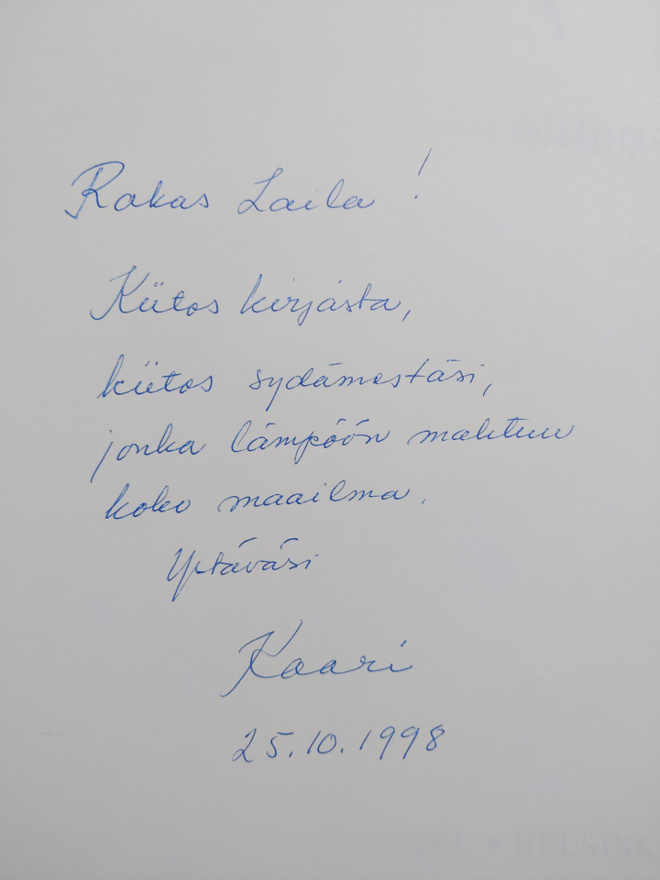 Rakas Laila!
Kiitos kirjasta,
kiitos sydämestäsi,
jonka lämpöön mahtuu
koko maailma.
Ystäväsi
Kaari
25.10.1998
HELSINK